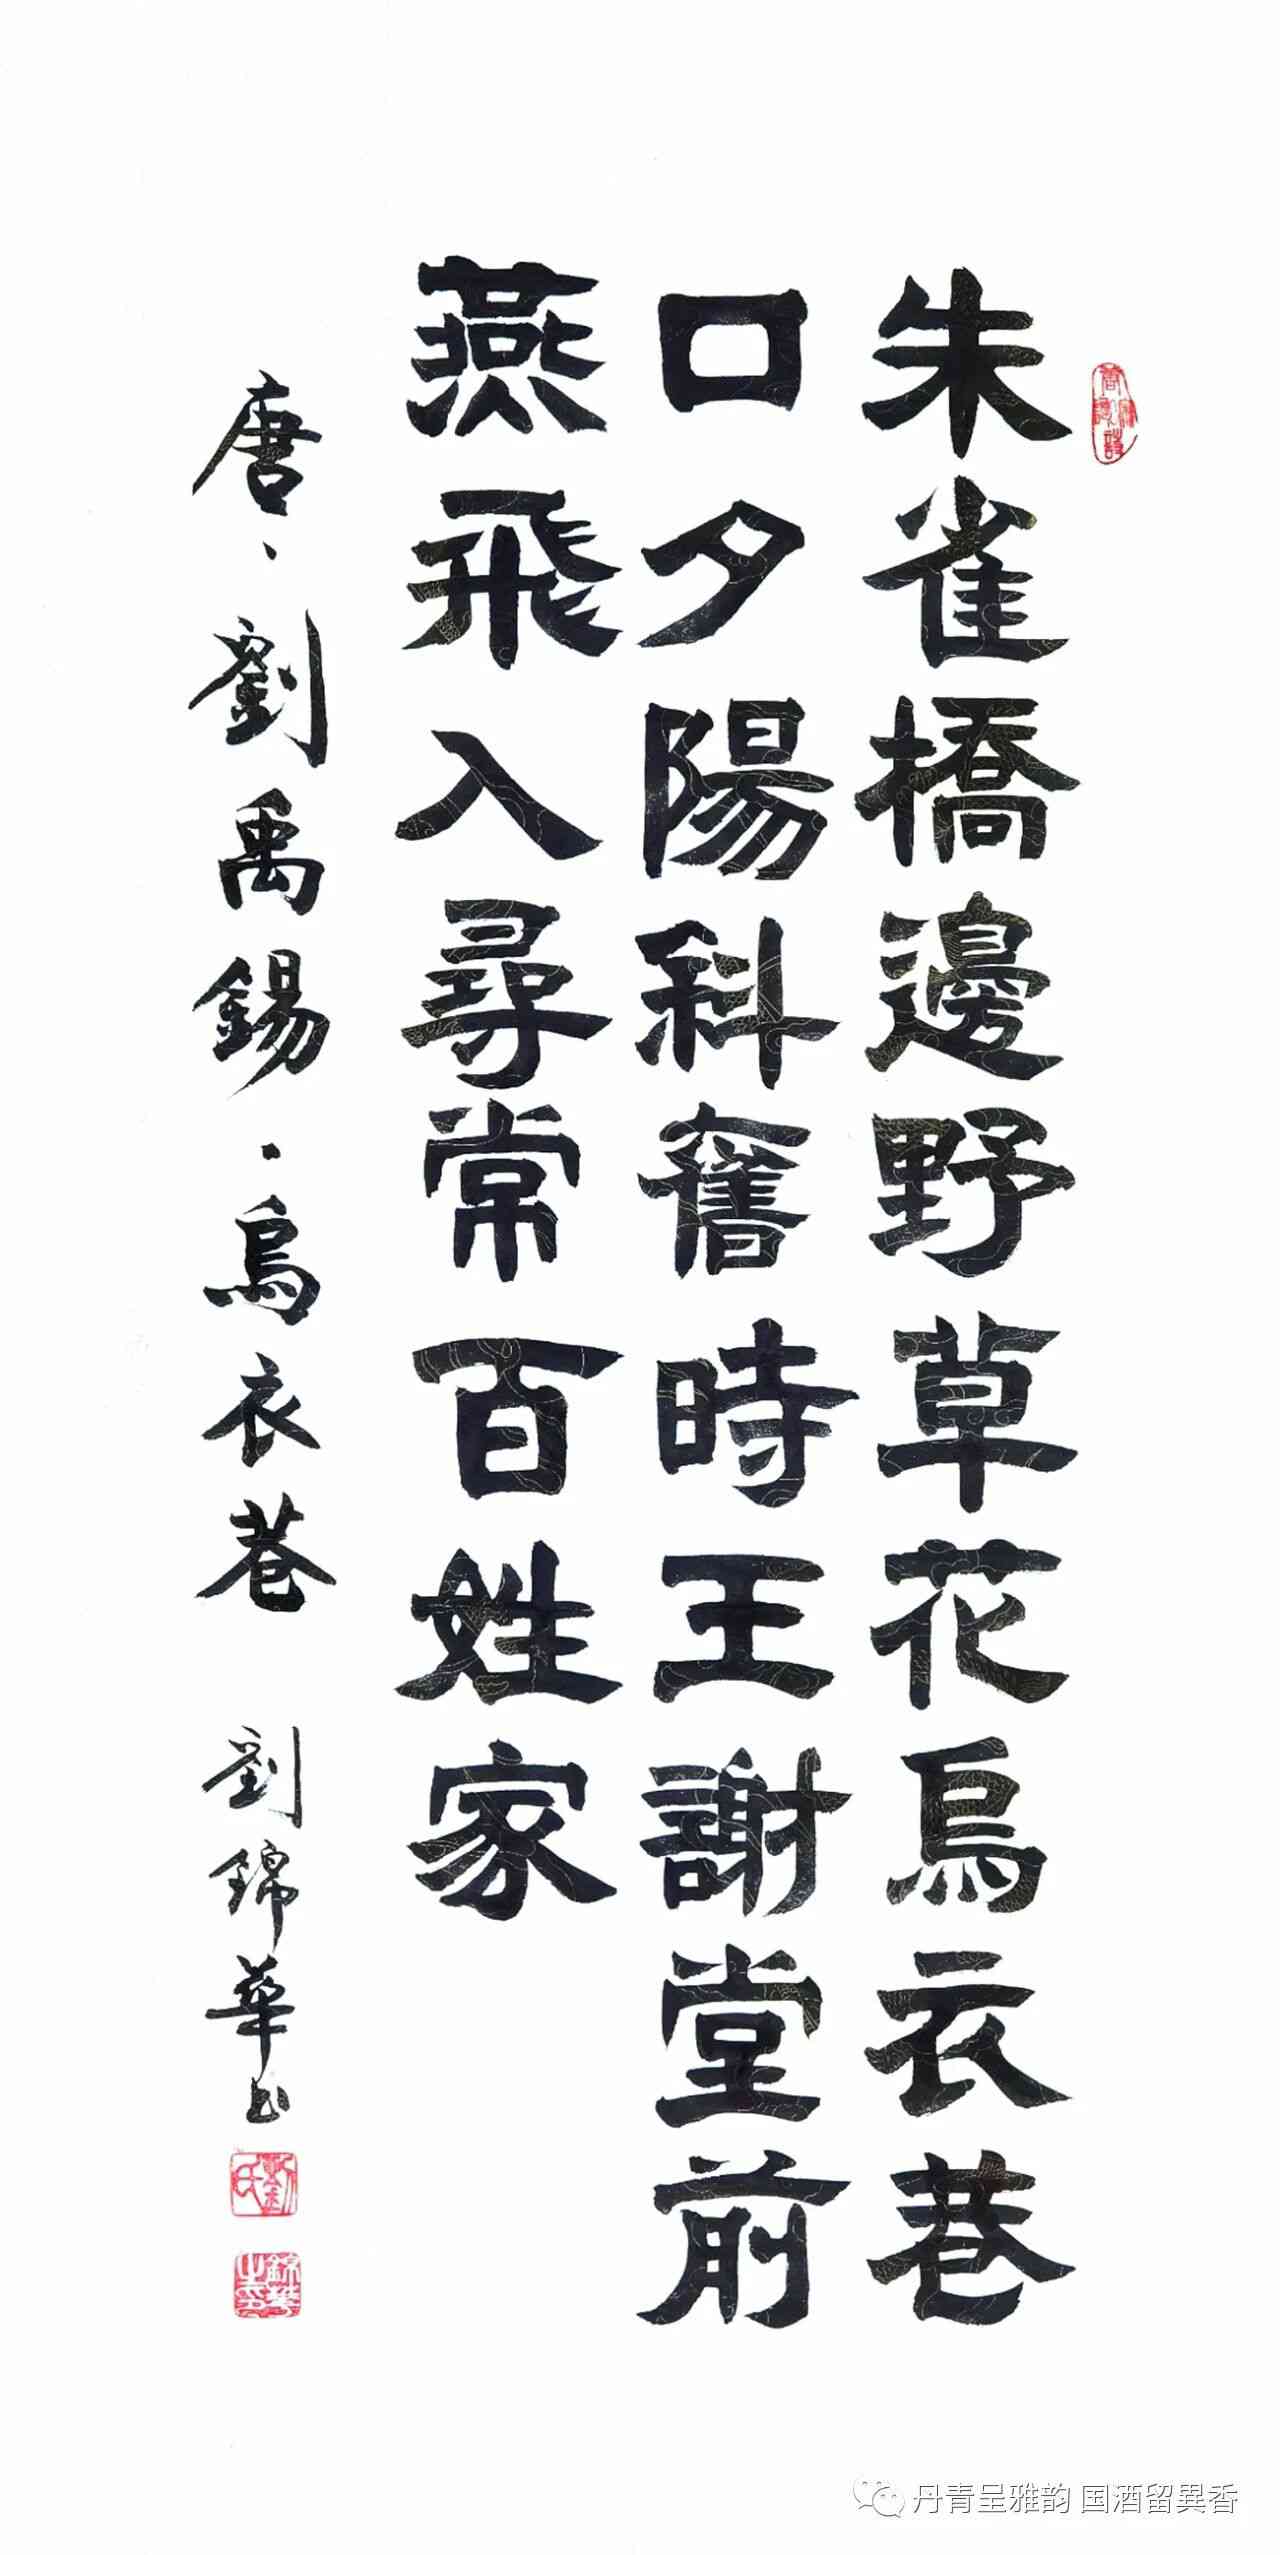 朱雀橋邊野草花烏衣巷
口夕陽斜舊時王謝堂前
燕飛入尋常百姓家
唐·劉禹錫·烏衣巷 劉錦華书
劉氏
丹青呈雅韵 国酒留異香